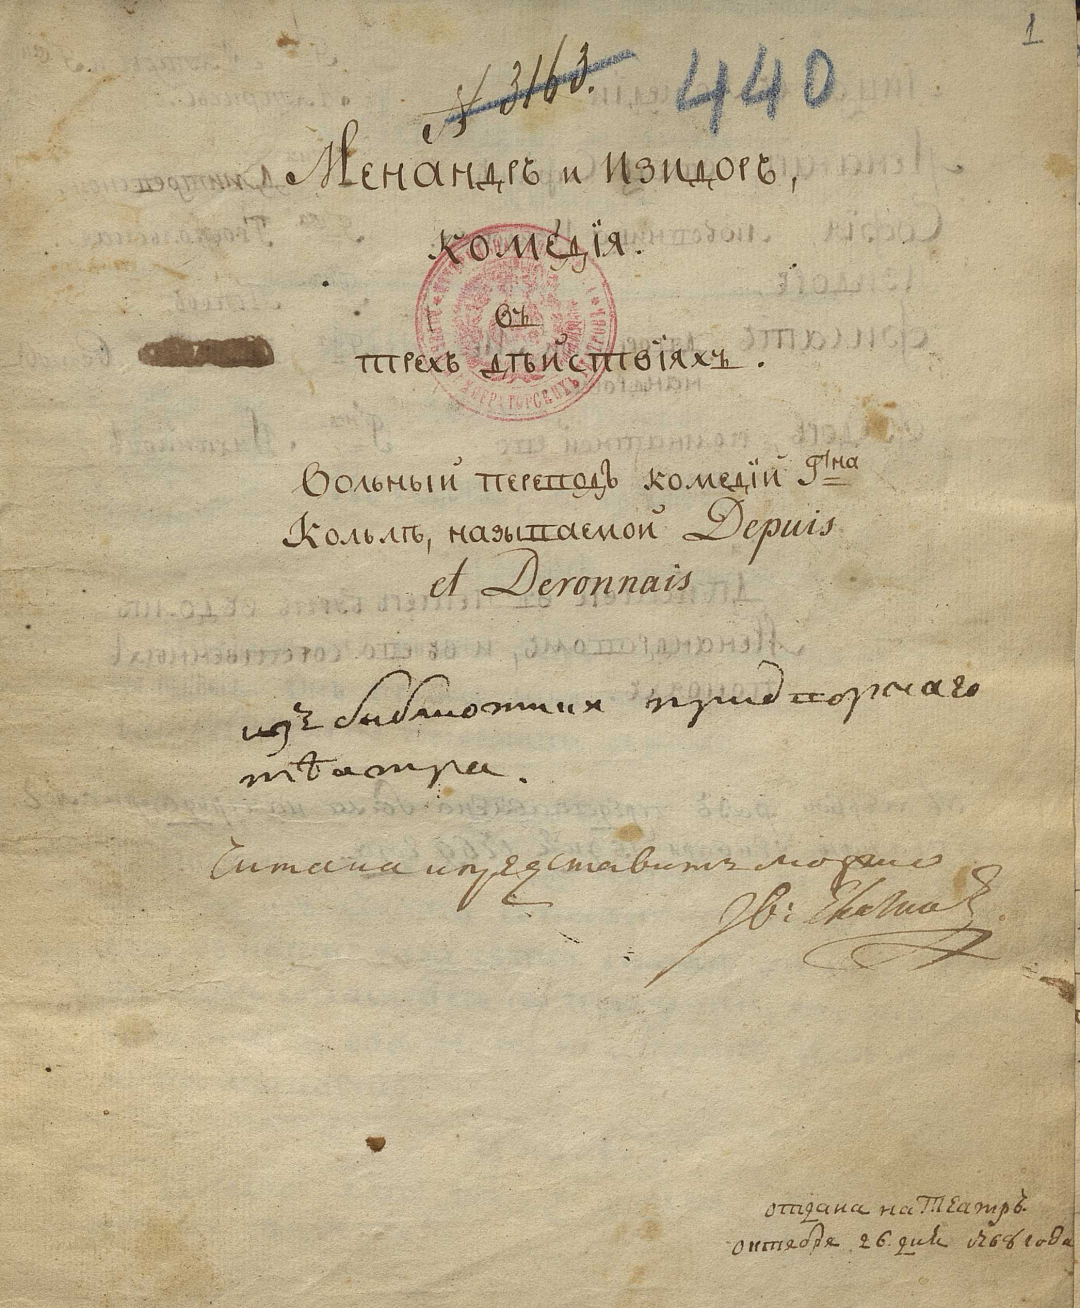 1
N 3163.
440
Менандръ и Изидоръ,
комедїя.
въ
трехъ дѣйствїяхъ.
Вольный переводъ комедїй Г:на
Кольле, называемой Depuis
et Deronnais
изъ библиотики придворнаго
тѣатра.
Читана ипредставить можно
отдана на Театръ.
октебря 26 дня 1768 года